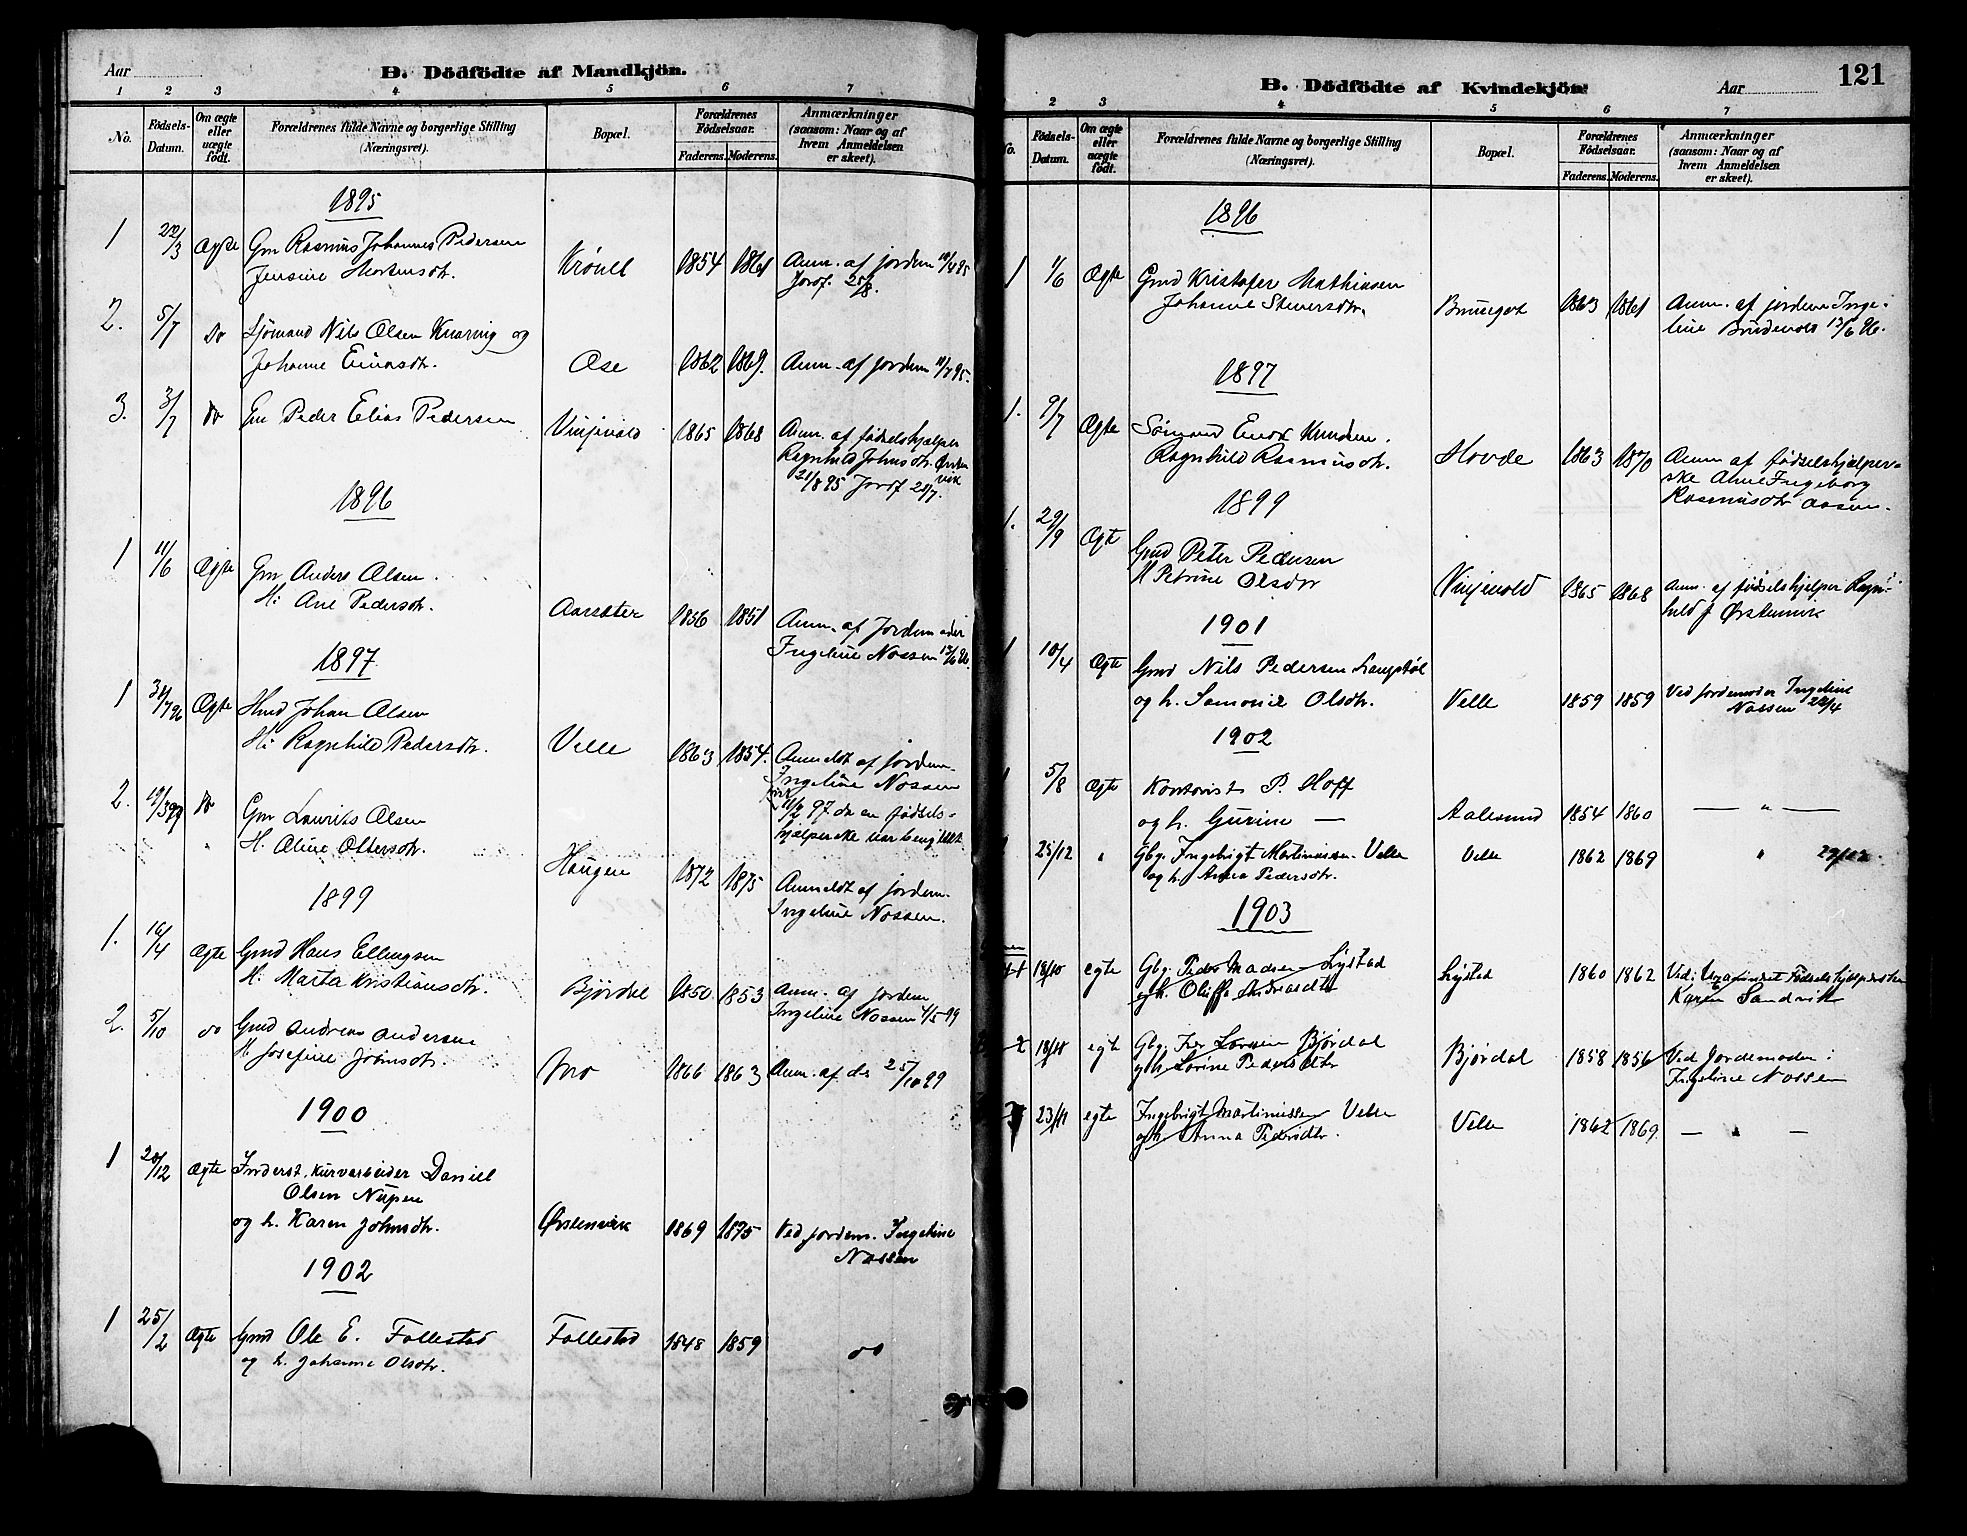 Aar
B. Dödfödte af Mandkjön.
1 2 3 4 5 6 7
No.
Födsels-
Datum.
Om ægte
eller
uægte
födt.
Forældrenes fulde Navne og borgerlige Stilling
(Næringsvei).
Bopæl.
Forældrenes
Födselsaar.
Faderens. Moderens.
Anmærkninger
(saasom: Naar og af
hvem Anmeldelsen
er skeet).
1895
1 22/3 Ægte Gm Rasmus Johannes Pedersen
Jensine Mortensdtr. 1854 1861 Anm. af jordem 10/4 95
Jordf. 25/3.
2. 5/7 do Sjömand Nils Olsen Knaring og
Johanne Einarsdtr. Ose 1862 1869. Anm. af jordem 11/7 95.
3. 3/7 do Em Peder Elias Pedersen Vinjevold 1865 1868 Anm. af fødselshjelper
Ragnhild Johnsdtr. Ørsten
vik
21/8 95 Jordf 20/7.
1896
1 11/6 Ægte Gm Anders Olsen.
H: Ane Pedersdtr. Aarsæter 1856 1851 Anm. af Jordemoder
Ingeline Nossen 13/6 96.
1897
1 31/7 96 Ægte Hmd Johan Olsen
H: Ragnhild Pedersdtr. Velle 1863 1854. Anmeldt af jordem.
Ingeline Nossen
11/2 97 da en fødsels-
hjælperske var benyttet
2. 19/3 97 do Gm Laurits Olsen
H. Aline Ottersdtr. Haugen 1872 1875 Anmeldt af jordem.
Ingeline Nossen.
1899
1. 16/4 Ægte Gmd Hans Ellingsen
H: Marta Kristiansdtr. Bjørdal 1850 1853 Anm. af jordem
Ingeline Nossen 4/5 99
2. 5/10 do Gmd Andreas Andersen
H. Josefine Johnsdtr. Mo 1866 1863 Anm. af do 25/10 99
1900
1 20/12 Ægte Inderst, kurvarbeider Daniel
Olsen Nupen
og h. Karen Johnsdtr. Ørstenvik 1869 1875 Ved jordem. Ingeline
Nossen
1902
1 25/2 Ægte Gmd Ole E. Follestad
og h. Johanne Olsdtr. Follestad 1848 1859 do
121
B. Dödfödte af Kvindekjön.
Aar
2 3 4 5 6 7
No.
Födsels-
Datum.
Om ægte
eller
uægte
födt.
Forældrenes fulde Navne og borgerlige Stilling
(Næringsvei).
Bopæl.
Forældrenes
Födselsaar.
Faderens. Moderens.
Anmærkninger
(saasom: Naar og af
hvem Anmeldelsen
er skeet).
1896
1 1/6 Ægte Gmd Kristofer Mathiasen
Johanne Siversdtr. 1863 1861 Anm. af jordem Inge-
line 13/6 96.
1897
1. 9/7 Ægte Sømand Knudsen.
Ragnhild Rasmusdtr. Hovde 1863 1870 Anm af fødselshjelper-
ske Ane Ingeborg
Rasmusdtr Aasen.
1899
1. 29/9 Ægte Gmd Peter Pedersen
H Petrine Olsdtr Vinjevold 1865 1868 Anm. af fødselshjelper Ragn-
hild J Ørstenvik
1901
1 10/4 Ægte Gmd Nils Pedersen Langstøl
og h. Samonie Olsdtr. Velle 1859 1859 Ved jordemoder Ingeline
Nossen 22/4
1902
1 5/8 Ægte Kontorist P. Hoff
og h. Gurine — Aalesund 1854 1860 — " —
25/12 " Gbg. Ingebrigt Martinussen Velle
og h. Anna Pedersdtr. Velle 1862 1869 " 29/12.
1903
1 18/10 egte Gbg. Peder Madsen Lystad
og h. Oluffa Lystad 1860 1862 Ved Fødselshjelpersken
Karen Sandvik
2 18/11 egte Gbg. Larsen Bjørdal
og h. Lorine Pedersdtr Bjørdal 1858 1856 Ved Jordemoder:
Ingeline Nossen
3 23/11 egte Ingebrigt Martinussen Velle
og h. Anna Pedersdtr. Velle 1862 1869. — " —